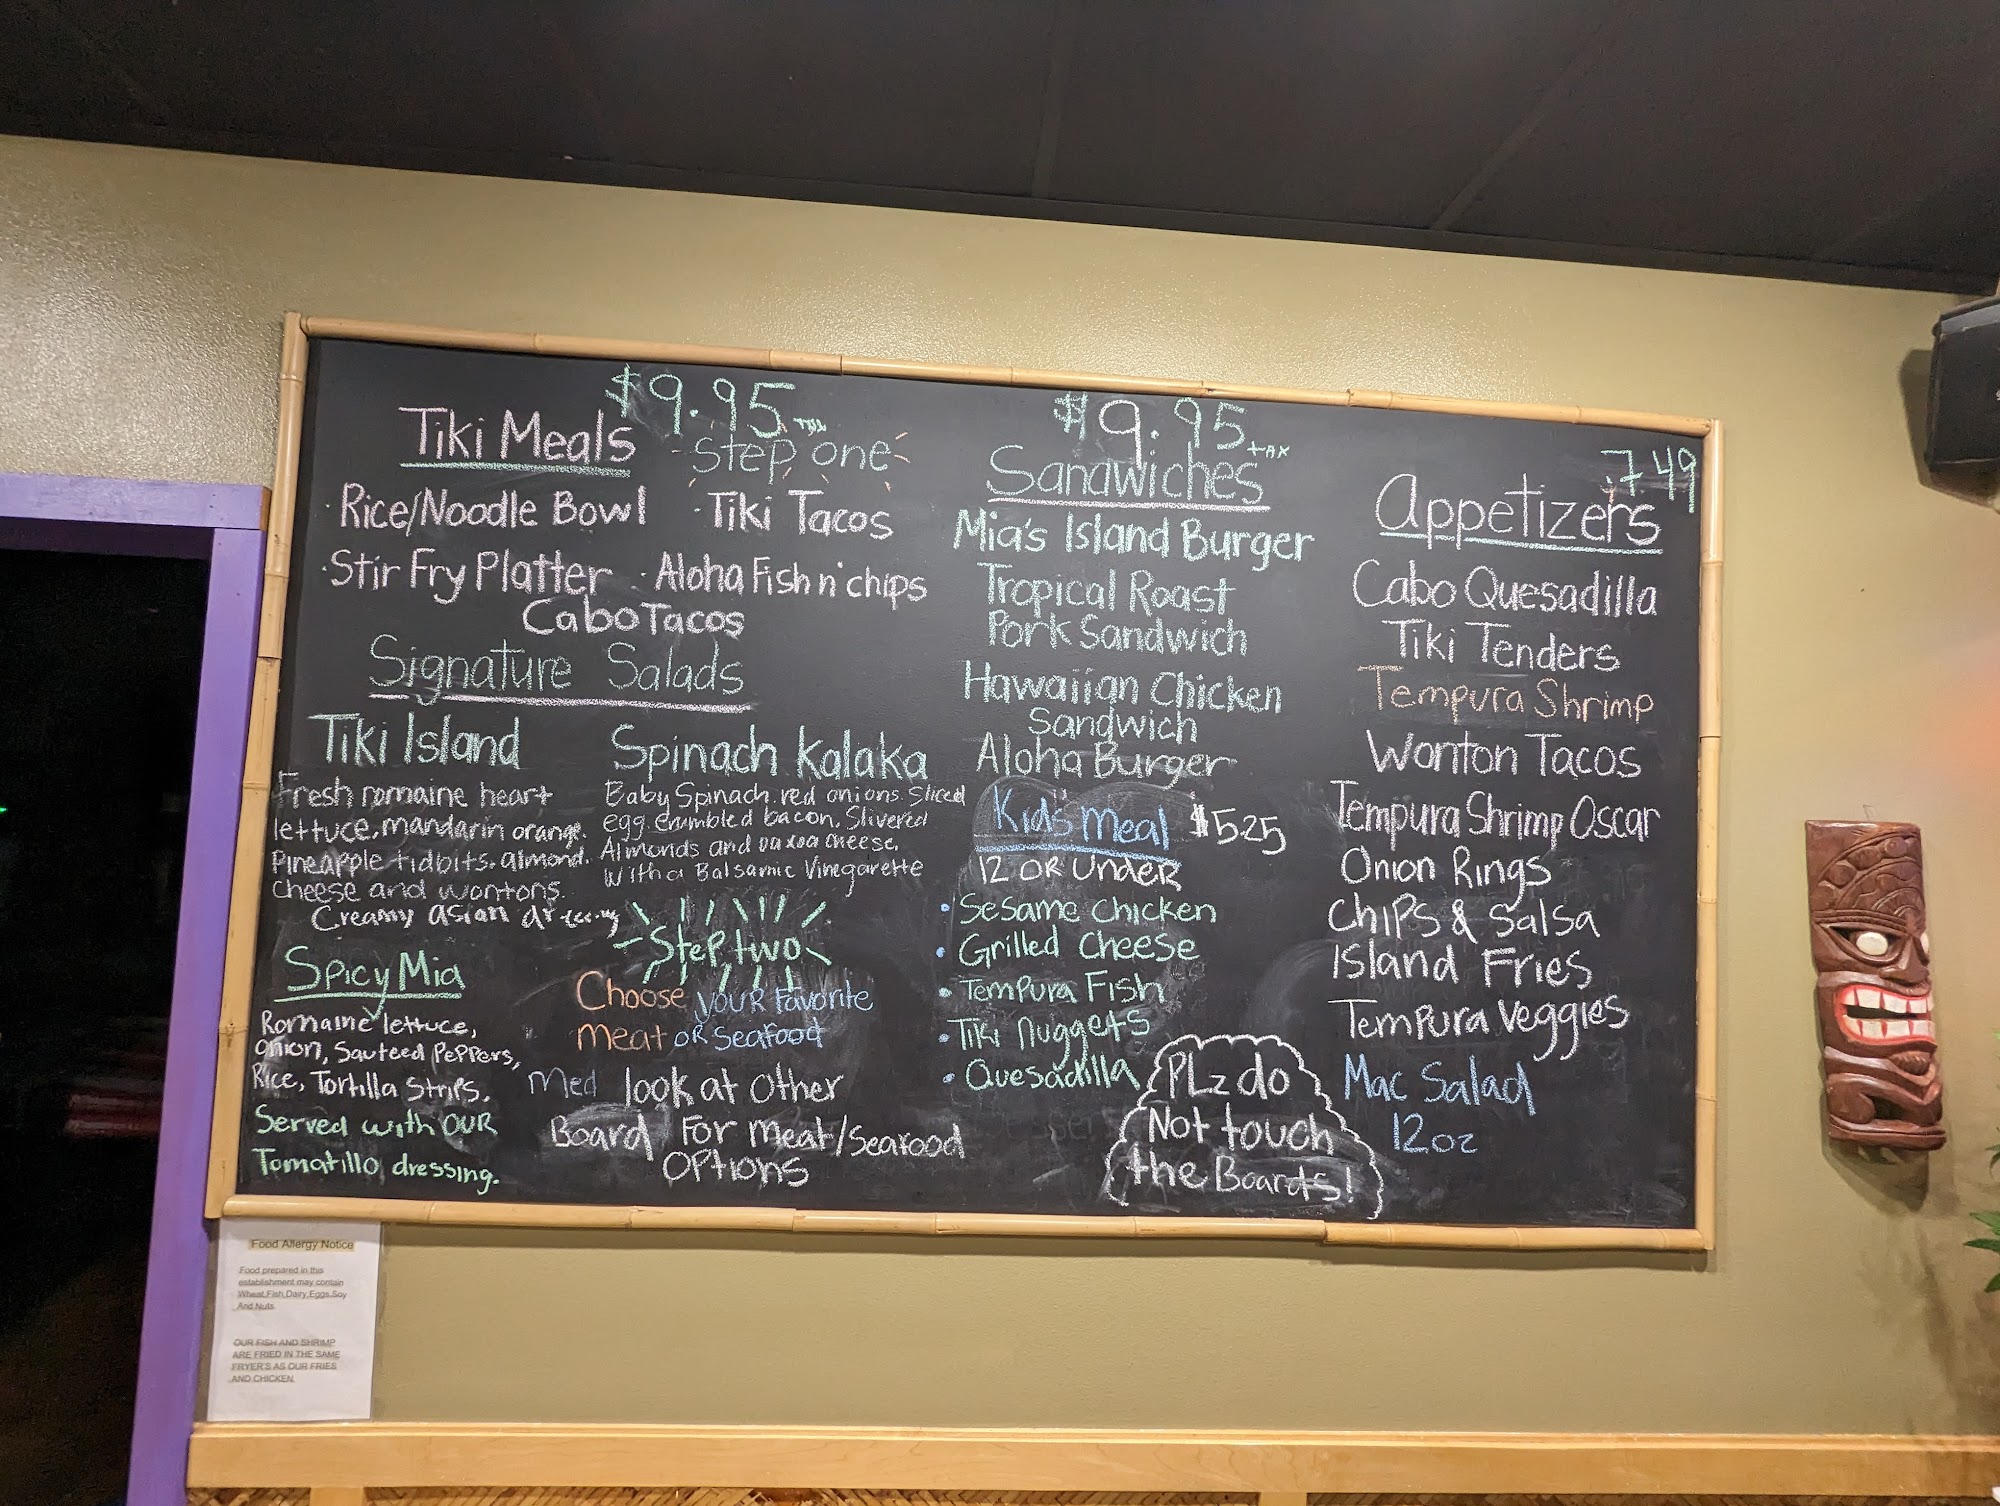 $9.95
Tiki Meals
Step one
· Rice/Noodle Bowl
· Tiki Tacos
· Stir Fry Platter
· Aloha Fish n' chips
Cabo Tacos
Signature Salads
Tiki Island
Fresh romaine heart
lettuce, mandarin orange.
Pineapple tidbits. almond.
Cheese and wontons.
Creamy asian
Spinach Kalaka
Baby Spinach. red onions. Sliced
egg. crumbled bacon. Slivered
Almonds and cheese.
With a Balsamic Vinegarette
Spicy Mia
Romaine lettuce,
onion, Sauteed Peppers,
Rice, Tortilla Strips.
Served with OUR
Tomatillo dressing.
Step two
Choose your Favorite
meat or Seafood
Med look at other
Board For meat/Seafood
Options
$9.95 tax
Sandwiches
Mia's Island Burger
Tropical Roast
Pork Sandwich
Hawaiian Chicken
Sandwich
Aloha Burger
Kids Meal $5.25
12 OR UNDER
• Sesame Chicken
• Grilled Cheese
• Tempura Fish
• Tiki Nuggets
• Quesadilla
PLz do
Not touch
the Boards!
7 49
Appetizers
Cabo Quesadilla
Tiki Tenders
Tempura Shrimp
Wonton Tacos
Tempura Shrimp Oscar
Onion Rings
Chips & Salsa
Island Fries
Tempura Veggies
Mac Salad
12oz
Food Allergy Notice
Food prepared in this
establishment may contain
Wheat,Fish,Dairy,Eggs,Soy
And Nuts
OUR FISH AND SHRIMP
ARE FRIED IN THE SAME
FRYER'S AS OUR FRIES
AND CHICKEN.